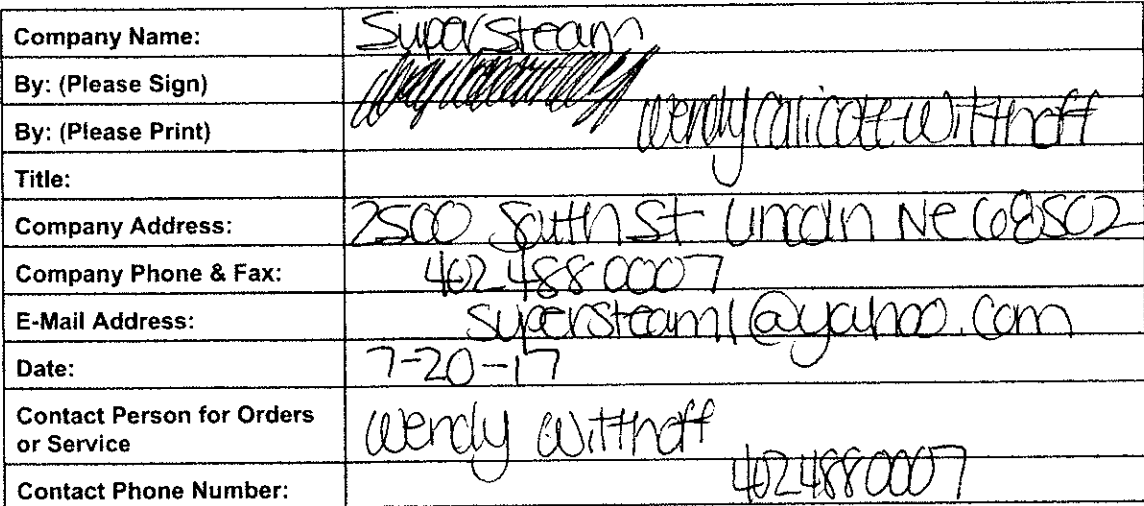 Company Name: Supersteam
By: (Please Sign)
By: (Please Print) Wendy Calicott Witthoff
Title:
Company Address: 2500 South St Lincoln Ne 68502
Company Phone & Fax: 402 488 0007
E-Mail Address: supersteam1@yahoo.com
Date: 7-20-17
Contact Person for Orders
or Service Wendy Witthoff
Contact Phone Number: 402 488 0007